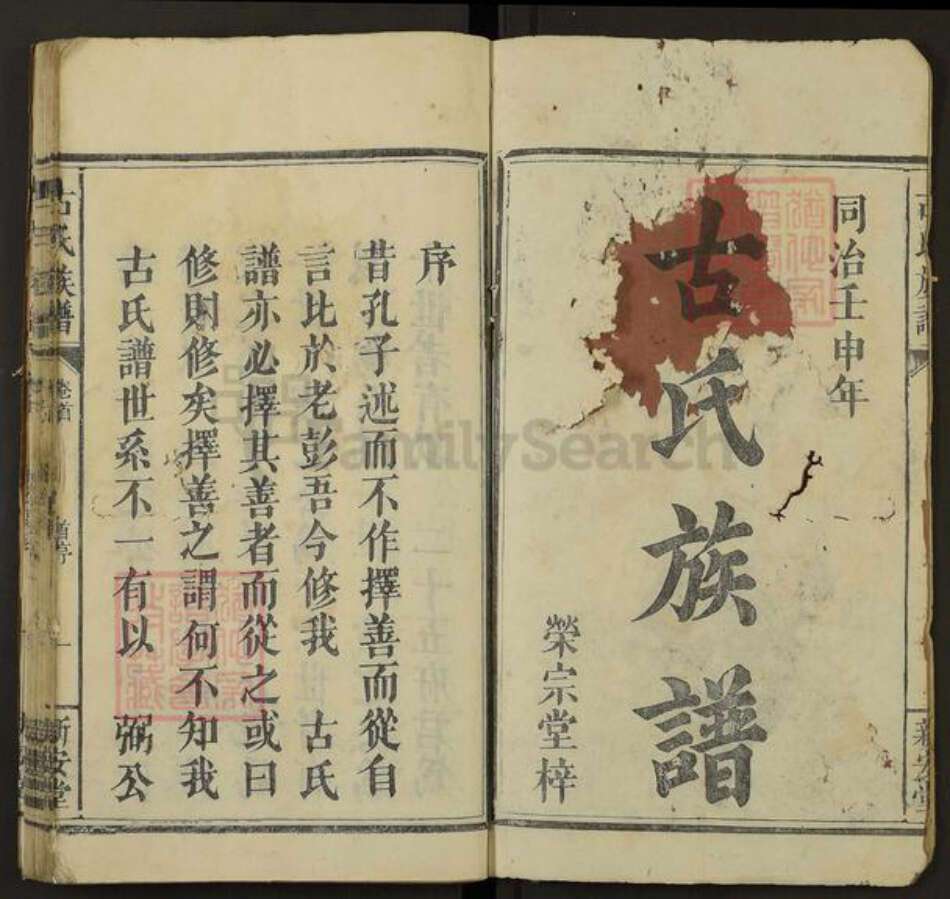 同治壬申年
古氏族譜
榮宗堂梓
序
昔孔子述而不作擇善而從自
言比於老彭吾今修我 古氏
譜亦必擇其善者而從之或曰
修則修矣擇善之謂何不知我
古氏譜世系不一有以 弼公
氏族譜
卷首
一
新安堂
FamilySearch